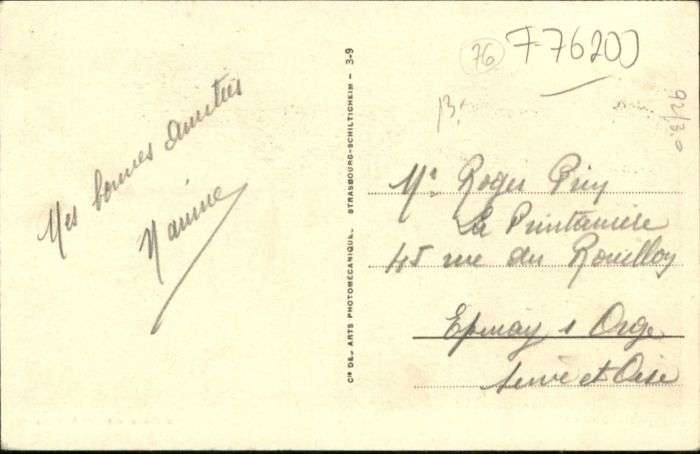 Mes bonnes amitiés
Nanine
Cie DES ARTS PHOTOMECANIQUE. STRASBOURG-SCHILTIGHEIM - 3-9
76
F-76200
Mr Roger
La Printanière
45 rue du Rouillon
Epinay s Orge
Seine et Oise